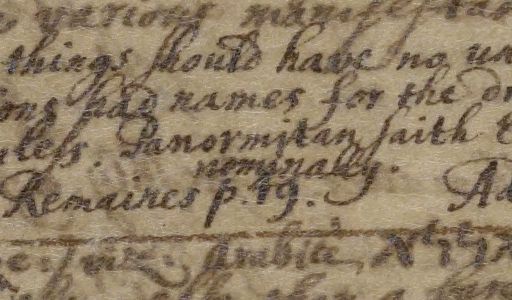 various manifestat
things should have no va
ions had names for the di
less. Panormitan saith t
nominally.
Remaines p. 19. Ad
viz. Arabia,